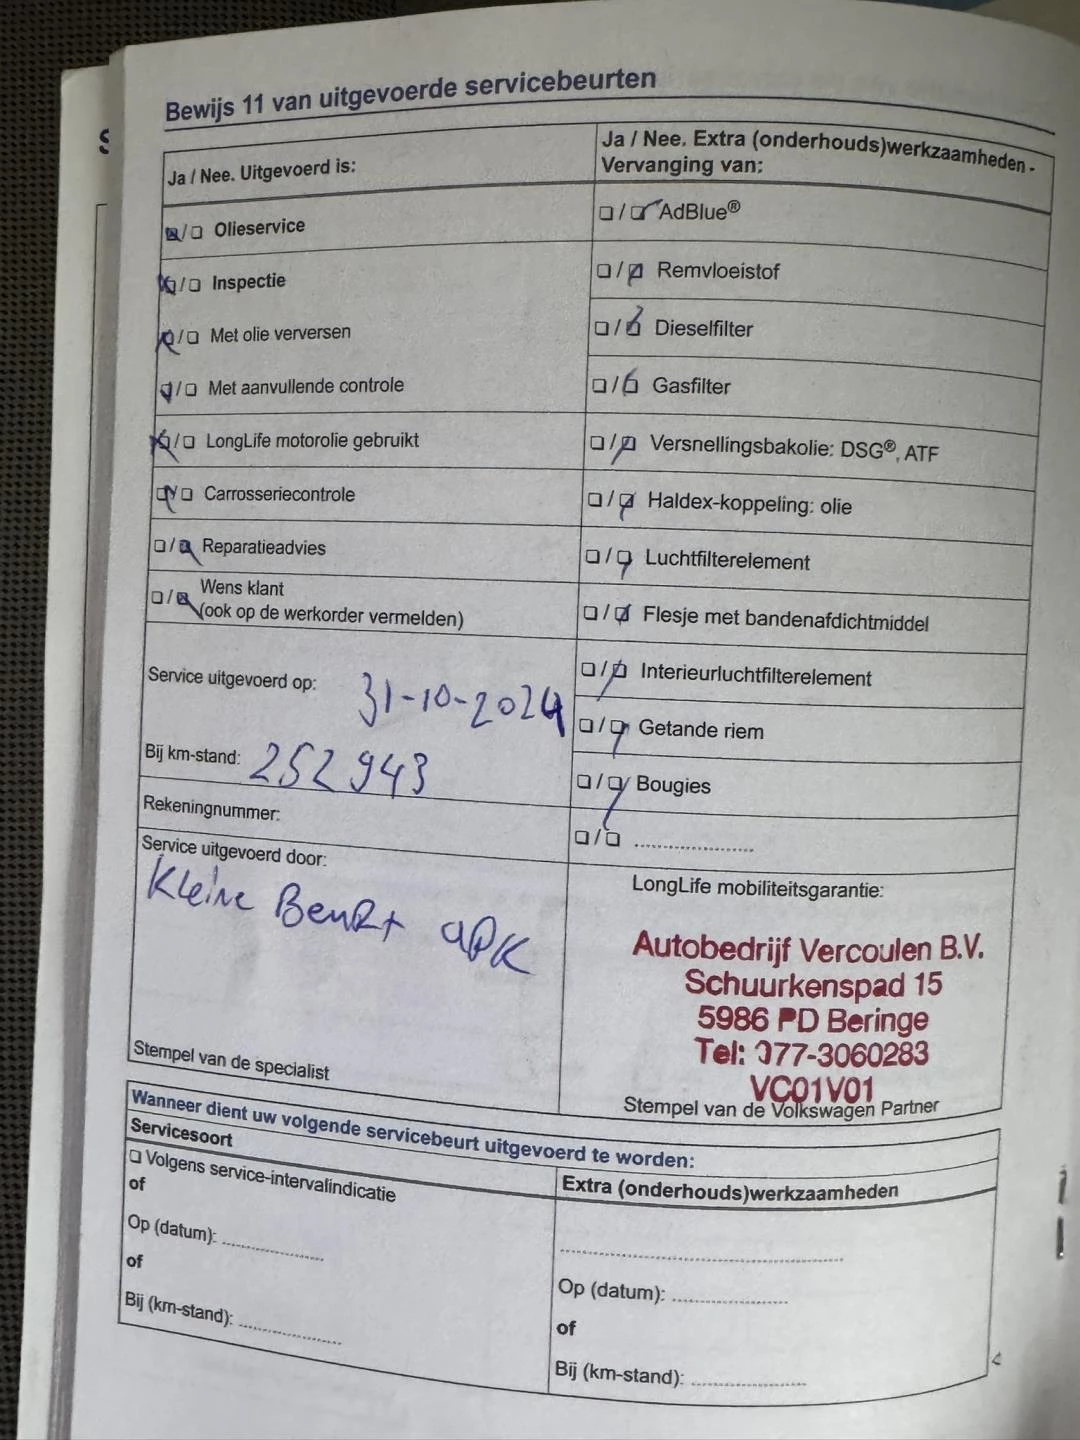 Bewijs 11 van uitgevoerde servicebeurten
Ja / Nee. Uitgevoerd is:
☒/☐ Olieservice
☒/☐ Inspectie
☒/☐ Met olie verversen
☒/☐ Met aanvullende controle
☒/☐ LongLife motorolie gebruikt
☒/☐ Carrosseriecontrole
☐/☒ Reparatieadvies
☐/☒ Wens klant
(ook op de werkorder vermelden)
Service uitgevoerd op: 31-10-2024
Bij km-stand: 252943
Rekeningnummer:
Service uitgevoerd door:
Kleine Beurt APK
Stempel van de specialist
Ja / Nee. Extra (onderhouds)werkzaamheden -
Vervanging van:
☐/☒ AdBlue®
☐/☒ Remvloeistof
☐/☒ Dieselfilter
☐/☒ Gasfilter
☐/☒ Versnellingsbakolie: DSG®, ATF
☐/☒ Haldex-koppeling: olie
☐/☒ Luchtfilterelement
☐/☒ Flesje met bandenafdichtmiddel
☐/☒ Interieurluchtfilterelement
☐/☒ Getande riem
☐/☒ Bougies
☐/☐ ....................
LongLife mobiliteitsgarantie:
Autobedrijf Vercoulen B.V.
Schuurkenspad 15
5986 PD Beringe
Tel: 077-3060283
VC01V01
Stempel van de Volkswagen Partner
Wanneer dient uw volgende servicebeurt uitgevoerd te worden:
Servicesoort
☐ Volgens service-intervalindicatie
of
Op (datum): ....................
of
Bij (km-stand): ....................
Extra (onderhouds)werkzaamheden
..................................................
Op (datum): ....................
of
Bij (km-stand): ....................